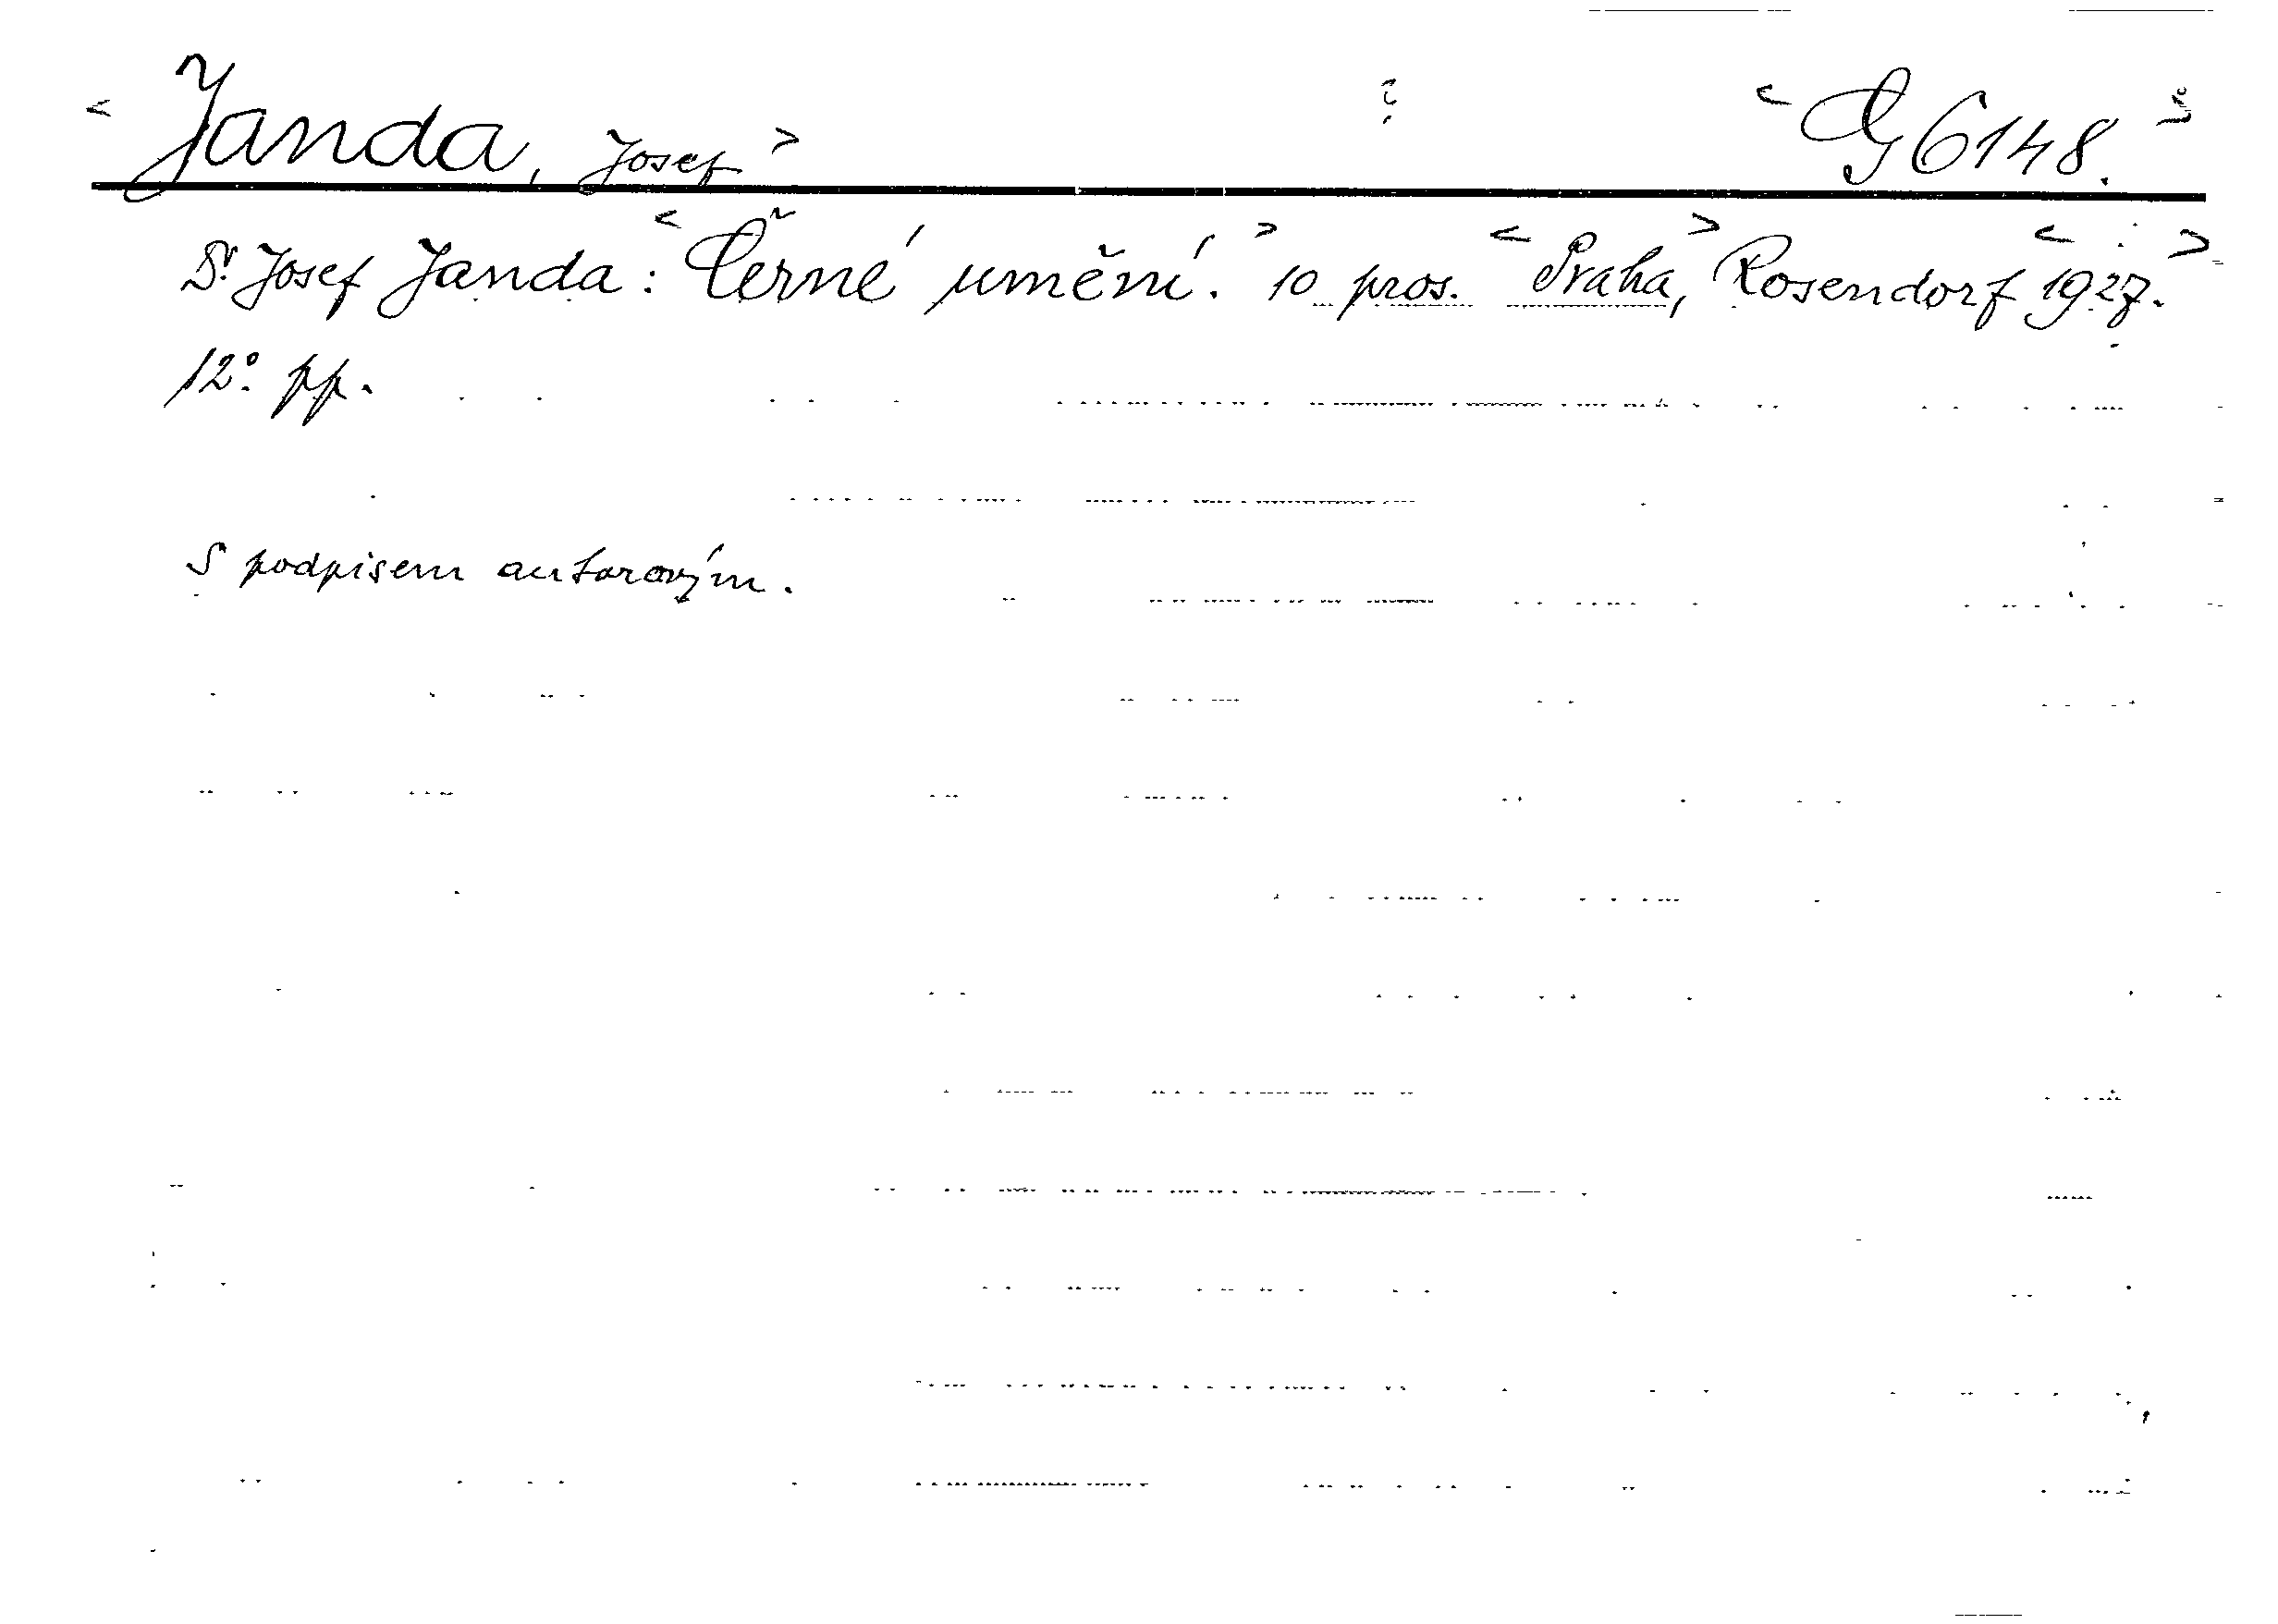 < Janda, Josef > < G 6148. >
Dr. Josef Janda: < Černé umění. > 10 pros. < Praha, > Rosendorf < 1927. >
12° pp.
S podpisem autorovým.